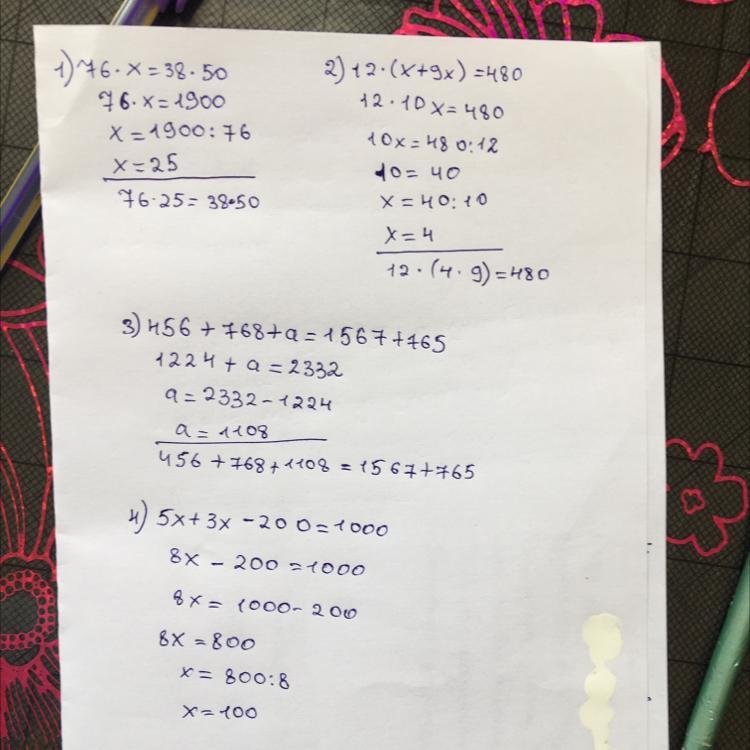 1) 76 · x = 38 · 50
76 · x = 1900
x = 1900 : 76
x = 25
76 · 25 = 38 · 50
2) 12 · (x + 9x) = 480
12 · 10x = 480
10x = 480 : 12
10 = 40
x = 40 : 10
x = 4
12 · (4 · 9) = 480
3) 456 + 768 + a = 1567 + 765
1224 + a = 2332
a = 2332 - 1224
a = 1108
456 + 768 + 1108 = 1567 + 765
4) 5x + 3x - 200 = 1000
8x - 200 = 1000
8x = 1000 - 200
8x = 800
x = 800 : 8
x = 100